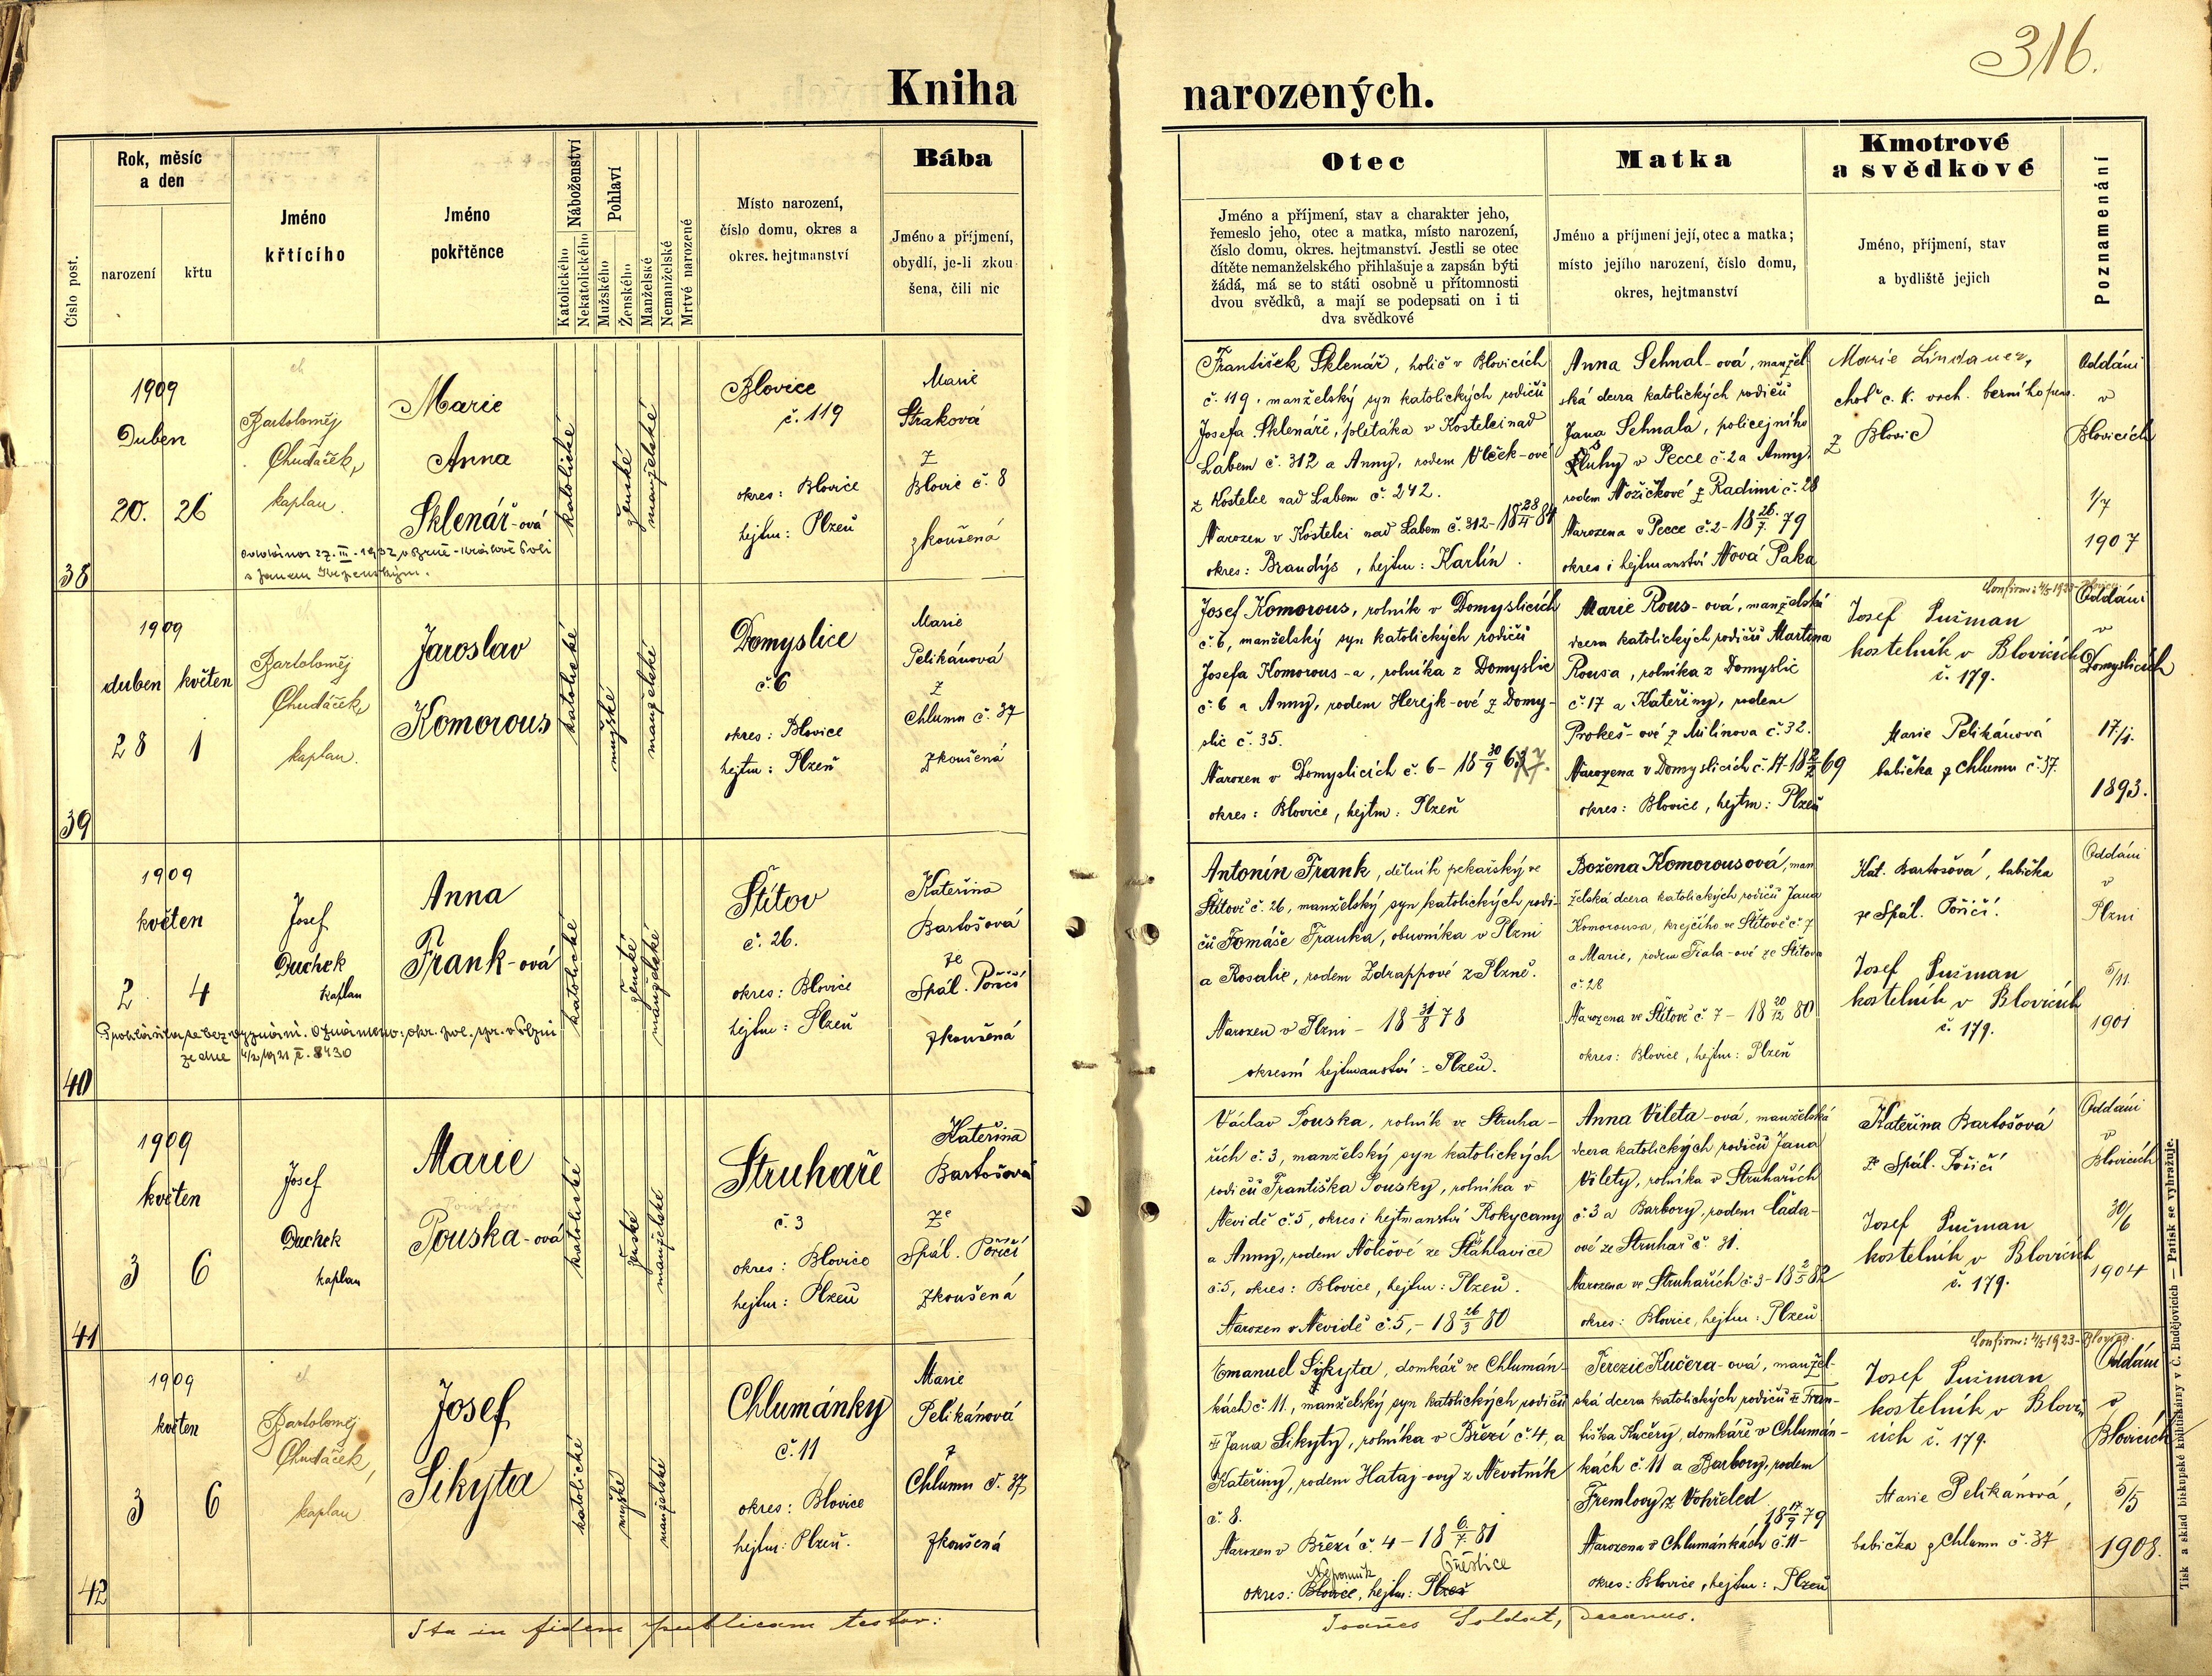 316.
Kniha narozených.
Číslo post.
Rok, měsíc
a den
narození
křtu
Jméno
křtícího
Jméno
pokřtěnce
Náboženství
Katolického
Nekatolického
Pohlaví
Mužského
Ženského
Manželské
Nemanželské
Mrtvé narozené
Místo narození,
číslo domu, okres a
okres. hejtmanství
Bába
Jméno a příjmení,
obydlí, je-li zkou
šena, čili nic
Otec
Jméno a příjmení, stav a charakter jeho,
řemeslo jeho, otec a matka, místo narození,
číslo domu, okres. hejtmanství. Jestli se otec
dítěte nemanželského přihlašuje a zapsán býti
žádá, má se to státi osobně u přítomnosti
dvou svědků, a mají se podepsati on i ti
dva svědkové
Matka
Jméno a příjmení její, otec a matka;
místo jejího narození, číslo domu,
okres, hejtmanství
Kmotrové
a svědkové
Jméno, příjmení, stav
a bydliště jejich
Poznamenání
38
1909
Duben
20. 26
Bartoloměj
Chudáček,
kaplan.
Marie
Anna
Sklenář-ová
katolické
ženské
manželské
Blovice
č. 119
okres: Blovice
hejtm: Plzeň
Marie
Straková
z
Blovic č. 8
zkoušená
František Sklenář, holič v Blovicích
č. 119, manželský syn katolických rodičů
Josefa Sklenáře, pletáka v Kostelci nad
Labem č. 312 a Anny, rodem Vlček-ové
z Kostelce nad Labem č. 242.
Narozen v Kostelci nad Labem č. 312 - 18 28/4 84
okres: Brandýs, hejtm: Karlín.
Anna Sehnal-ová, manžel
ská dcera katolických rodičů
Jana Sehnala, policejního
sluhy v Pecce č. 2 a Anny,
rodem Nožičkové z Radimi č. 28
Narozena v Pecce č. 2 - 18 26/7 79
okres i hejtmanství Nová Paka
Marie Lindauer,
choť c. k. vrch. berního
z Blovic
Oddáni
v
Blovicích
1/7
1907
39
1909
duben květen
28 1
Bartoloměj
Chudáček,
kaplan.
Jaroslav
Komorous
katolické
mužské
manželské
Domyslice
č. 6
okres: Blovice
hejtm: Plzeň
Marie
Pelikánová
z
Chlumu č. 37
zkoušená
Josef Komorous, rolník v Domyslicích
č. 6, manželský syn katolických rodičů
Josefa Komorous-a, rolníka z Domyslic
č. 6 a Anny, rodem Herejk-ové z Domy-
slic č. 35.
Narozen v Domyslicích č. 6 - 18 30/9 67.
okres: Blovice, hejtm: Plzeň
Marie Rous-ová, manželská
dcera katolických rodičů Martina
Rousa, rolníka z Domyslic
č. 17 a Kateřiny, rodem
Prokeš-ové z Milínova č. 32.
Narozena v Domyslicích č. 17 - 18 2/2 69
okres: Blovice, hejtm: Plzeň
Confirm: 4/5 1923 - Blovice
Josef Pušman
kostelník v Blovicích
č. 179.
Marie Pelikánová
babička z Chlumu č. 37.
Oddáni
v
Domyslicích
17/1.
1893.
40
1909
květen
2 4
Josef
Duchek
kaplan
Anna
Frank-ová
katolické
ženské
manželské
Štítov
č. 26.
okres: Blovice
hejtm: Plzeň
Kateřina
Bartošová
ze
Spál. Poříčí
zkoušená
Antonín Frank, dělník pekařský ve
Štítově č. 26, manželský syn katolických rodi-
čů Tomáše Franka, obuvníka v Plzni
a Rosalie, rodem Zdrappové z Plzně.
Narozen v Plzni - 18 31/8 78
okresní hejtmanství - Plzeň.
Božena Komorousová, man
želská dcera katolických rodičů Jana
Komorousa, krejčího ve Štítově č. 7
a Marie, rodem Fiala-ové ze Štítova
č. 28
Narozena ve Štítově č. 7 - 18 20/12 80
okres: Blovice, hejtm: Plzeň
Kat. Bartošová, babička
ze Spál. Poříčí.
Josef Pušman
kostelník v Blovicích
č. 179.
Oddáni
v
Plzni
5/11.
1901
41
1909
květen
3 6
Josef
Duchek
kaplan
Marie
Pouska-ová
katolické
ženské
manželské
Struhaře
č. 3
okres: Blovice
hejtm: Plzeň
Kateřina
Bartošová
Ze
Spál. Poříčí
zkoušená
Václav Pouska, rolník ve Struha-
řích č. 3, manželský syn katolických
rodičů Františka Pousky, rolníka v
Nevidě č. 5, okres i hejtmanství Rokycany
a Anny, rodem Nolčové ze Šťáhlavice
č. 5, okres: Blovice, hejtm: Plzeň.
Narozen v Nevidě č. 5, - 18 26/3 80
Anna Vileta-ová, manželská
dcera katolických rodičů Jana
Vilety, rolníka v Struhařích
č. 3 a Barbory, rodem Čada-
ové ze Struhař č. 31.
Narozena ve Struhařích č. 3 - 18 2/5 82
okres: Blovice, hejtm: Plzeň
Kateřina Bartošová
ze Spál. Poříčí
Josef Pušman
kostelník v Blovicích
č. 179.
Oddáni
v
Blovicích
30/6
1904
42
1909
květen
3 6
Bartoloměj
Chudáček,
kaplan.
Josef
Sikyta
katolické
mužské
manželské
Chlumánky
č. 11
okres: Blovice
hejtm: Plzeň.
Marie
Pelikánová
z
Chlumu č. 37
zkoušená
Emanuel Sikyta, domkář ve Chlumán-
kách č. 11, manželský syn katolických rodičů
Jana Sikyty, rolníka v Březí č. 4, a
Kateřiny, rodem Hataj-ovy z Nevotník
č. 8.
Narozen v Březí č. 4 - 18 6/7 81
Nepomuk Přeštice
okres: Blovice, hejtm: Plzeň
Terezie Kučera-ová, manžel-
ská dcera katolických rodičů Fran-
tiška Kučery, domkáře v Chlumán-
kách č. 11 a Barbory, rodem
Fremlovy z Vohřeled
18 17/9 79
Narozena v Chlumánkách č. 11 -
okres: Blovice, hejtm: Plzeň
Confirm: 4/5 1923 - Blovice
Josef Pušman
kostelník v Blovi
cích č. 179.
Marie Pelikánová,
babička z Chlumu č. 37
Oddáni
v
Blovicích
5/5
1908.
Ita in fidem publicam testor:
Joañes Soldát, decanus.
Tisk a sklad biskupské knihtiskárny v Č. Budějovicích — Patisk se vyhražuje.